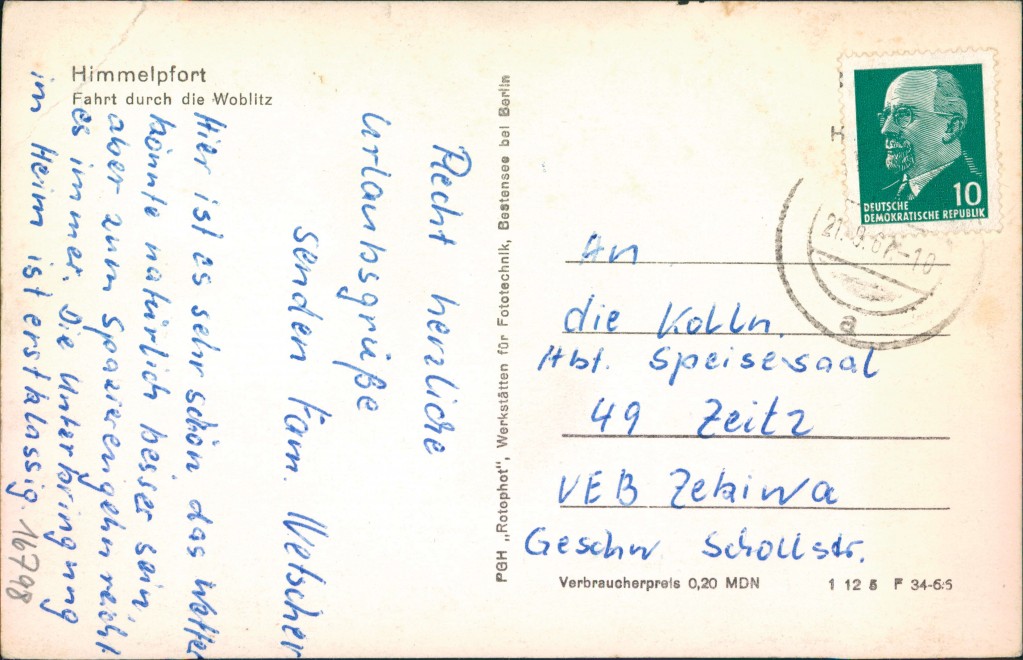 Himmelpfort
Fahrt durch die Woblitz
Recht herzliche
Urlaubsgrüße
senden Fam. Wetscher
Hier ist es sehr schön das Wetter
könnte natürlich besser sein,
aber zum Spazierengehn reicht
es immer. Die Unterbringung
im Heim ist erstklassig.
16798
PGH „Rotophot", Werkstätten für Fototechnik, Bestensee bei Berlin
10
DEUTSCHE
DEMOKRATISCHE REPUBLIK
21.8.67.-10
a
An
die Kolln.
Abt. Speisesaal
49 Zeitz
VEB Zekiwa
Geschw Schollstr.
Verbraucherpreis 0,20 MDN 1 12 5 F 34-65